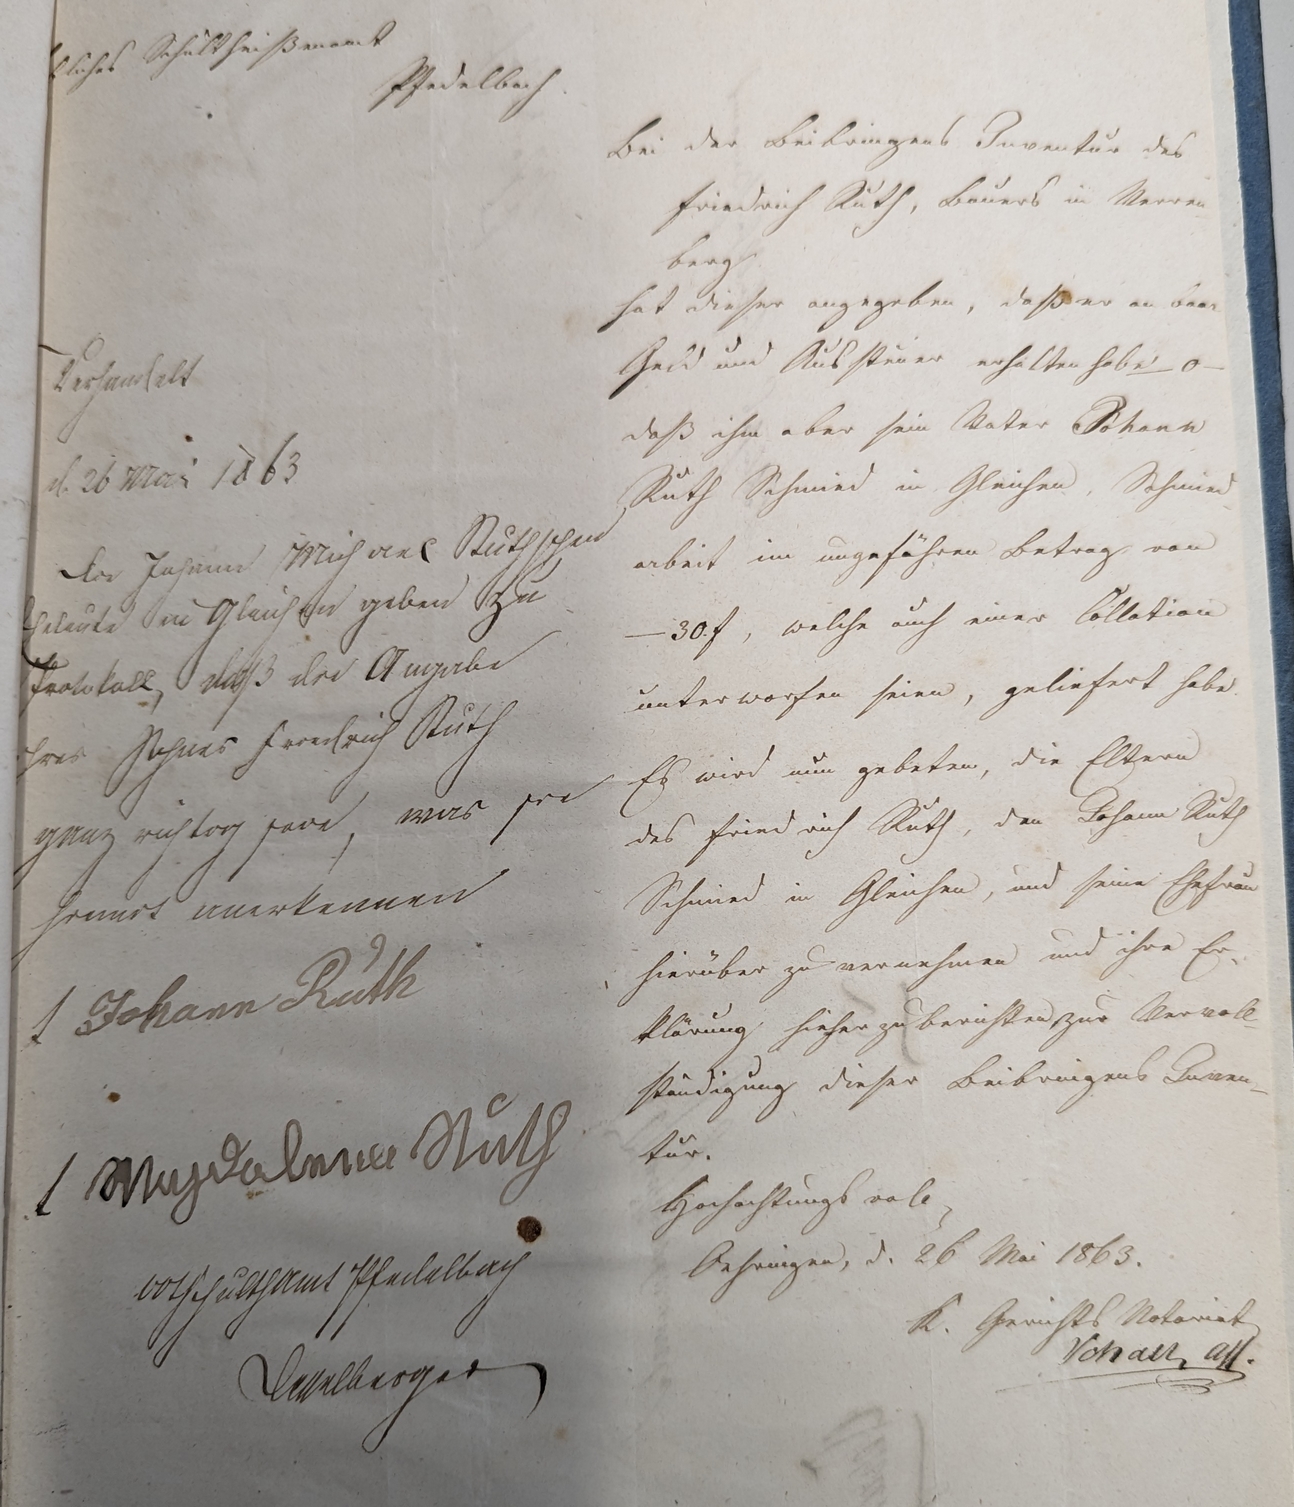 liches Schultheißenamt
Pfedelbach.
Bei der Beibringens Inventur des
Friedrich Ruth, Bauers in Verren
berg
hat dieser angegeben, daß er an baar
Geld und Aussteuer erhalten habe — 0 —
daß ihm aber sein Vater Johann
Ruth Schmied in Gleichen, Schmied
arbeit im ungefähren Betrag von
— 30 f, welche auch einer Collation
unterworfen seien, geliefert habe.
Es wird nun gebeten, die Eltern
des Friedrich Ruth, den Johann Ruth
Schmied in Gleichen, und seine Ehefrau
hierüber zu vernehmen und ihre Er-
klärung hieher zu berichten zur Vervoll-
ständigung dieser Beibringens Inven-
tur.
Hochachtungsvoll
Oehringen, d. 26 Mai 1863.
K. Gerichts Notariat
Ass.
Verhandelt
d. 26 Mai 1863
Die Johann Michael Ruthschen
Eheleute in Gleichen geben zu
Protokoll, daß die Angabe
ihres Sohnes Friedrich Ruth
ganz richtig seie, was sie
hiemit anerkennen
t Johann Ruth
t Magdalena Ruth
Schulthamt Pfedelbach